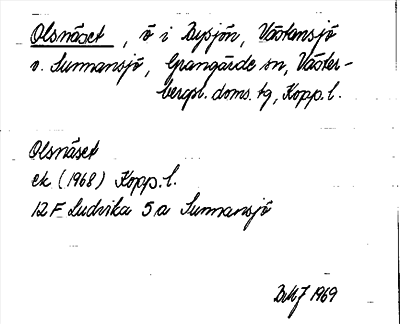 Olsnäset, ö i Bysjön, Västansjö
v. Sunnansjö, Grangärde sn, Väster-
bergsl. doms. tg, Kopp. l.
Olsnäset
ek (1968) Kopp. l.
12 F Ludvika 5a Sunnansjö
BMJ 1969